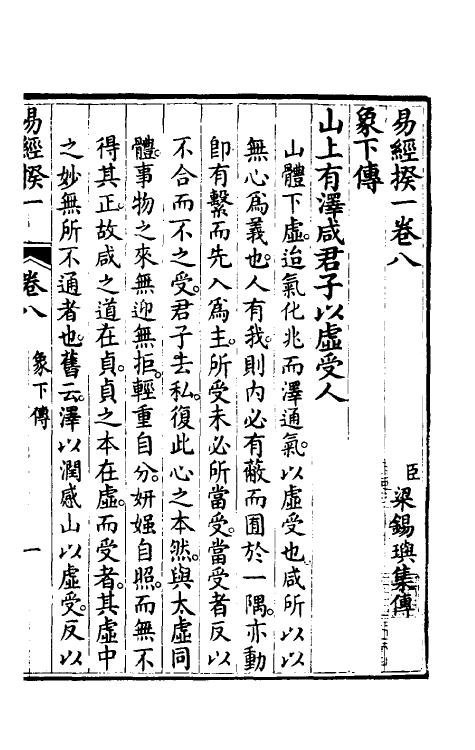 易經揆一卷八
臣梁錫璵集傳
象下傳
山上有澤咸君子以虛受人
山體下虛迨氣化兆而澤通氣以虛受也咸所以以
無心為義也人有我則內必有蔽而囿於一隅亦動
卽有繫而先入為主所受未必所當受當受者反以
不合而不之受君子去私復此心之本然與太虛同
體事物之來無迎無拒輕重自分姸媸自照而無不
得其正故咸之道在貞貞之本在虛而受者其虛中
之妙無所不通者也舊云澤以潤感山以虛受反以
易經揆一
卷八
象下傳
一